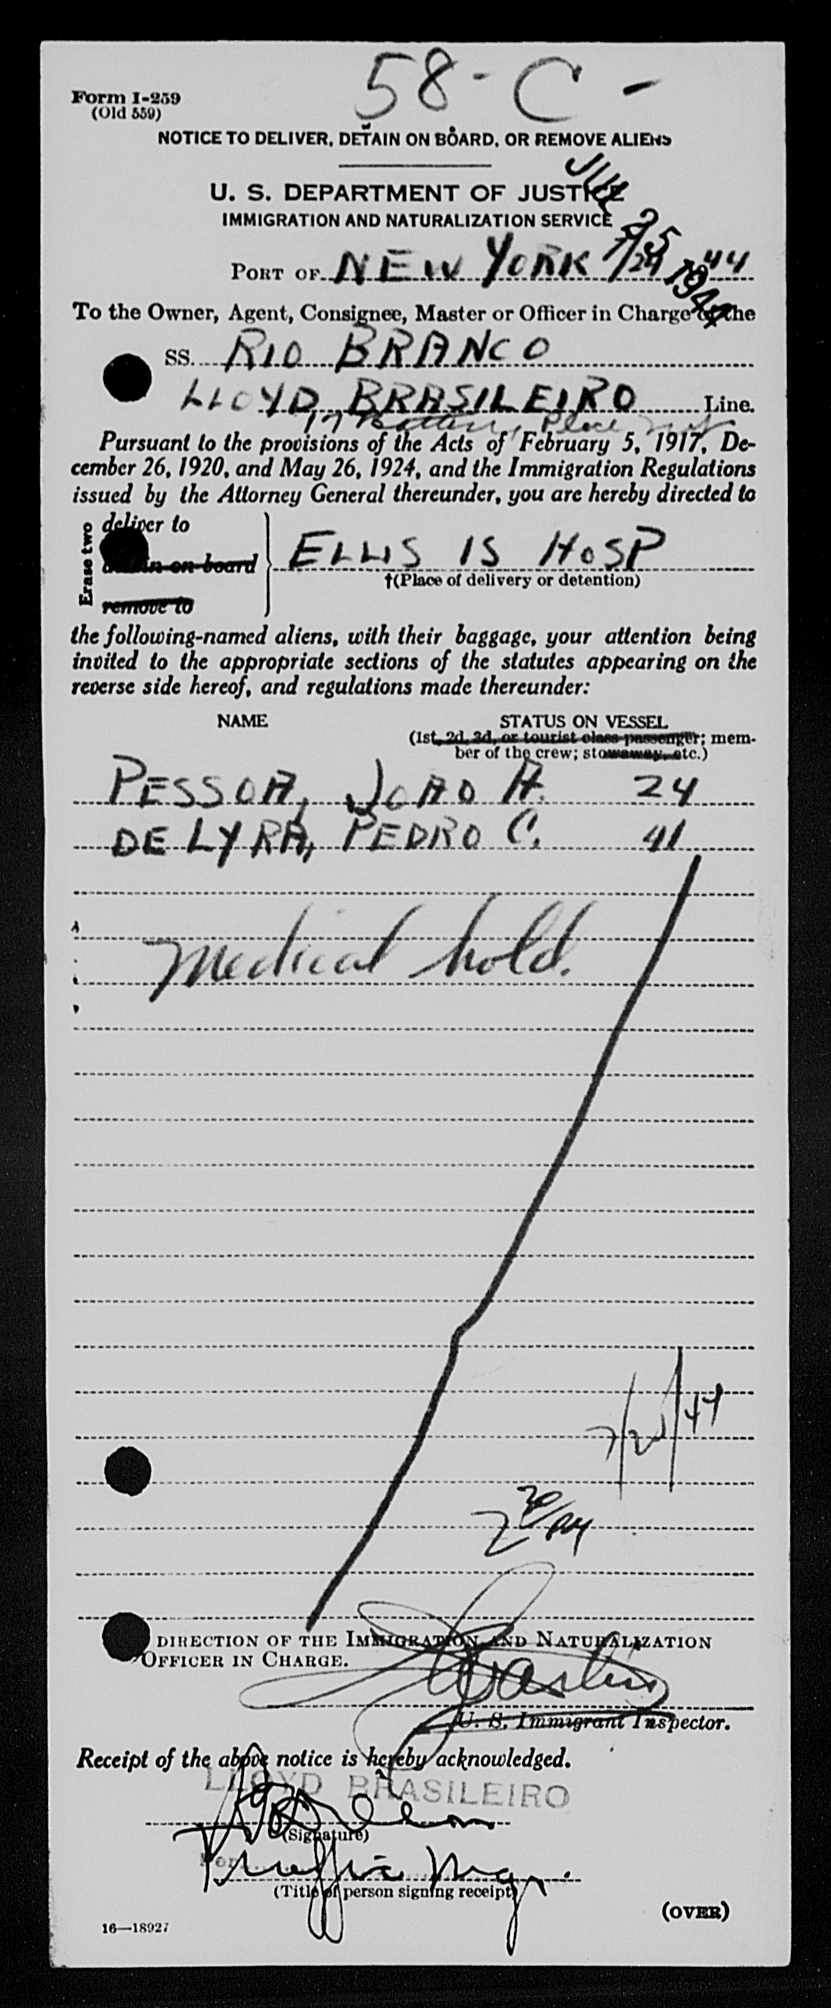 58-C-
Form I-259
(Old 559)
NOTICE TO DELIVER, DETAIN ON BOARD, OR REMOVE ALIENS
U. S. DEPARTMENT OF JUSTICE
IMMIGRATION AND NATURALIZATION SERVICE
JUL 25 1944
PORT OF NEW YORK 7/24 44
To the Owner, Agent, Consignee, Master or Officer in Charge of the
SS. RIO BRANCO
LLOYD BRASILEIRO Line.
17 Battery Place
Pursuant to the provisions of the Acts of February 5, 1917, De-
cember 26, 1920, and May 26, 1924, and the Immigration Regulations
issued by the Attorney General thereunder, you are hereby directed to
Erase two
deliver to
on board
remove to
ELLIS IS HOSP
†(Place of delivery or detention)
the following-named aliens, with their baggage, your attention being
invited to the appropriate sections of the statutes appearing on the
reverse side hereof, and regulations made thereunder:
NAME STATUS ON VESSEL
(1st, 2d, 3d, or tourist class passenger; mem-
ber of the crew; stowaway, etc.)
PESSOA, JOAO A. 24
DE LYRA, PEDRO C. 41
Medical hold.
7/25/44
2 30 PM
DIRECTION OF THE IMMIGRATION AND NATURALIZATION
OFFICER IN CHARGE.
U. S. Immigrant Inspector.
Receipt of the above notice is hereby acknowledged.
LLOYD BRASILEIRO
(Signature)
Traffic Mgr.
(Title of person signing receipt)
(OVER)
16—18927